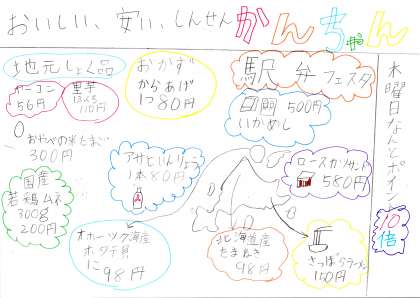 おいしい、安い、しんせん
かんちゃん
地元しょく品
56円
里芋
110円
おかず
からあげ
1つ80円
駅弁フェスタ
500円
いかめし
300円
アサヒいんりょう
1本80円
ロースカツサンド
580円
国産
若鶏ムネ
300g
200円
オホーツク海産
ホタテ貝
1こ98円
北海道産
たまねぎ
98円
さっぽろラーメン
150円
木曜日なんとポイント
10倍